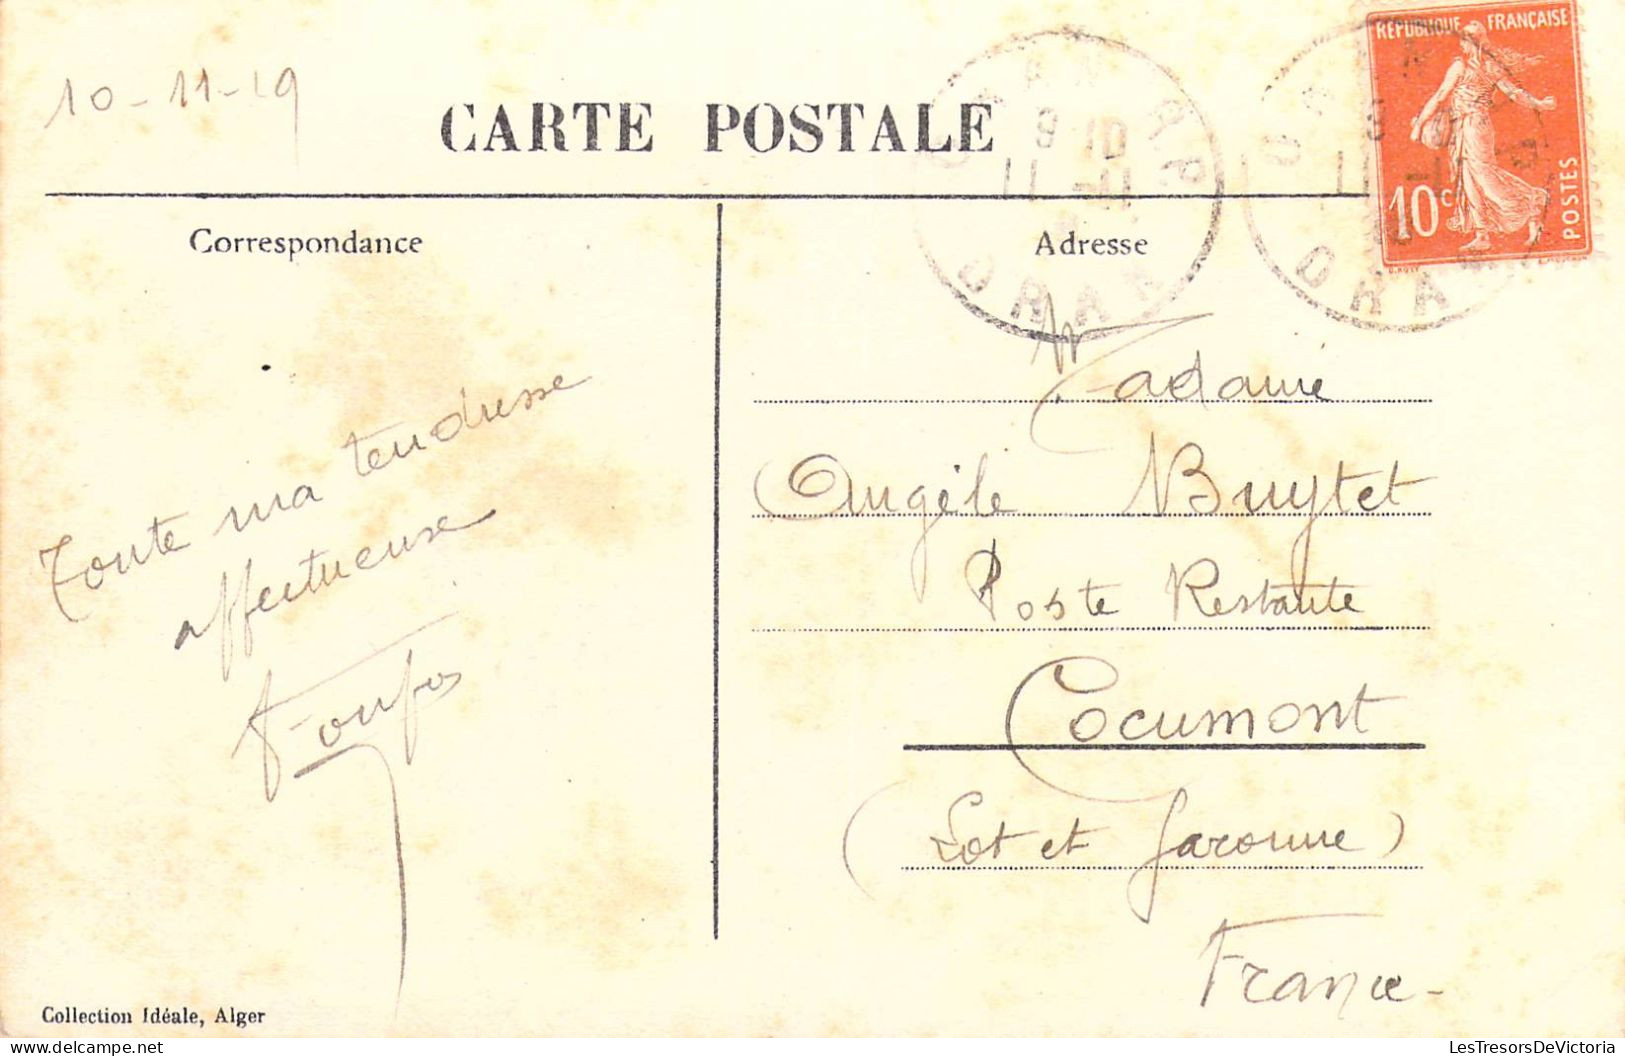 10-11-19
CARTE POSTALE
RÉPUBLIQUE FRANÇAISE
10c
POSTES
ORAN RP
ORAN
Correspondance
Adresse
Toute ma tendresse
affectueuse
Madame
Angèle Buytet
Poste Restante
Cocumont
(Lot et Garonne)
France-
Collection Idéale, Alger
LesTresorsDeVictoria